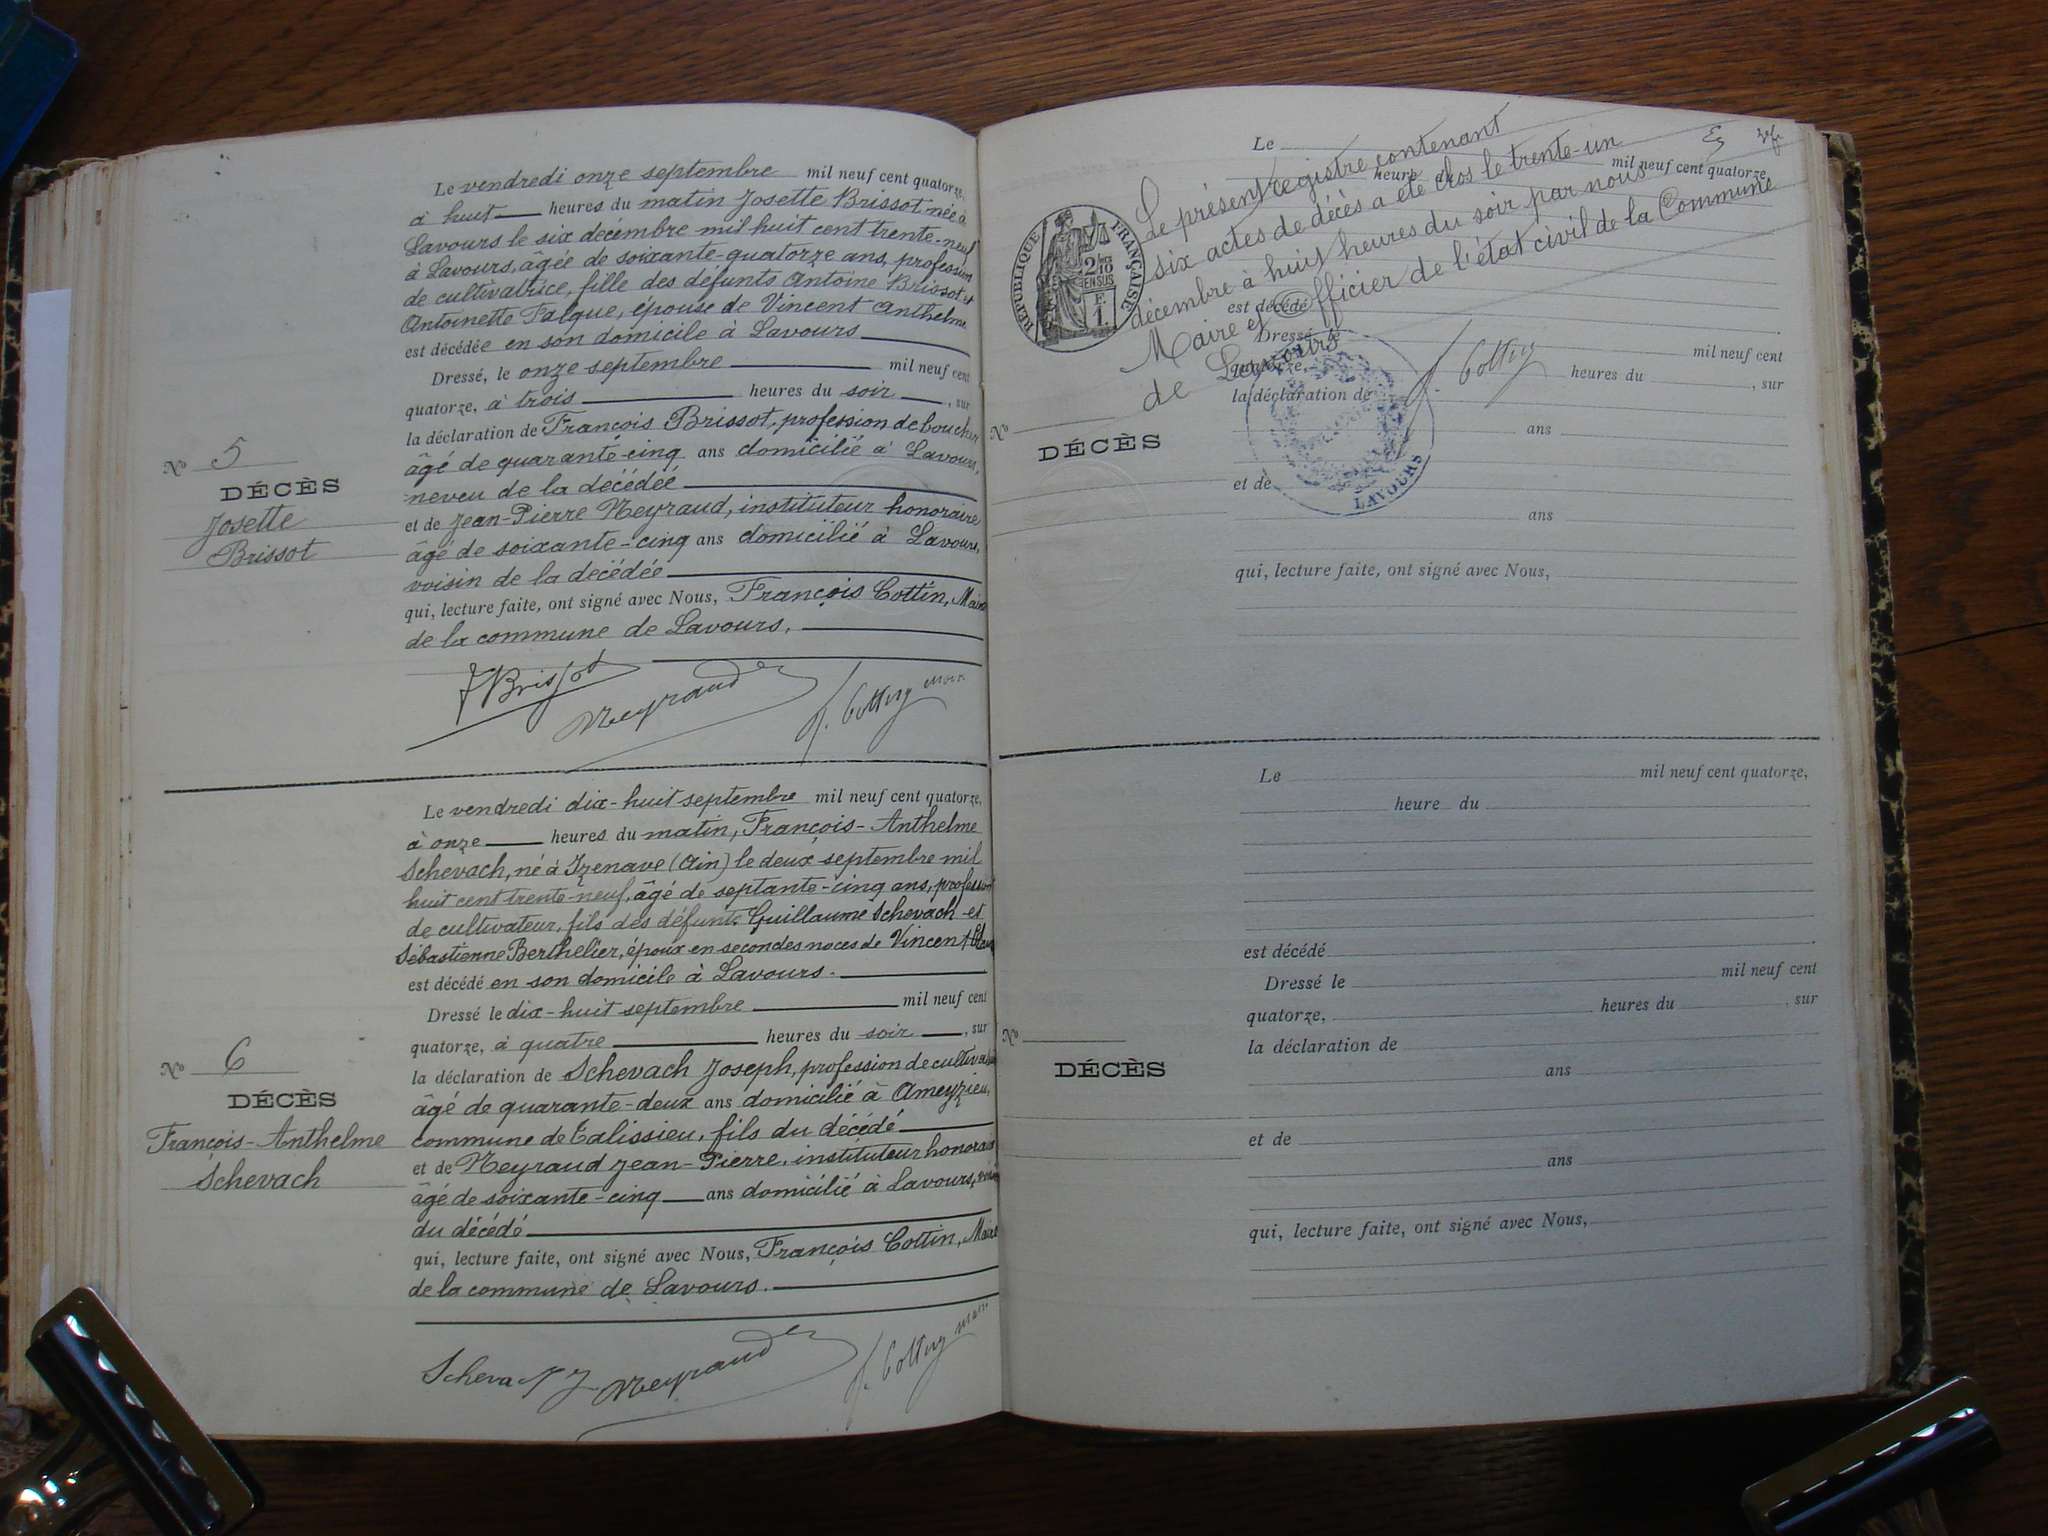 Le vendredi onze septembre mil neuf cent quatorze,
à huit heures du matin Josette Brissot née à
Lavours le six décembre mil huit cent trente-neuf
à Lavours, âgée de soixante-quatorze ans, profession
de cultivatrice, fille des défunts Antoine Brissot et
Antoinette Falque, épouse de Vincent Anthelme
est décédée en son domicile à Lavours
Dressé, le onze septembre mil neuf cent
quatorze, à trois heures du soir, sur
la déclaration de François Brissot, profession de boucher
âgé de quarante-cinq ans domicilié à Lavours,
neveu de la décédée
et de Jean-Pierre Meyraud, instituteur honoraire
âgé de soixante-cinq ans domicilié à Lavours,
voisin de la décédée
qui, lecture faite, ont signé avec Nous, François Cottin, Maire
de la commune de Lavours,
No 5
DÉCÈS
Josette
Brissot
F Brissot Meyraud F. Cottin maire
Le vendredi dix-huit septembre mil neuf cent quatorze,
à onze heures du matin, François-Anthelme
Schevach, né à Izenave (Ain) le deux septembre mil
huit cent trente-neuf, âgé de septante-cinq ans, profession
de cultivateur, fils des défunts Guillaume Schevach et
Sébastienne Berthelier, époux en secondes noces de Vincent
est décédé en son domicile à Lavours.
Dressé le dix-huit septembre mil neuf cent
quatorze, à quatre heures du soir, sur
la déclaration de Schevach Joseph, profession de cultivateur
âgé de quarante-deux ans domicilié à Ameyzieu,
commune de Talissieu, fils du décédé
et de Meyraud Jean-Pierre, instituteur honoraire
âgé de soixante-cinq ans domicilié à Lavours, voisin
du décédé
qui, lecture faite, ont signé avec Nous, François Cottin, Maire
de la commune de Lavours.
No 6
DÉCÈS
François-Anthelme
Schevach
Schevach J Meyraud F. Cottin maire
Le présent registre contenant
six actes de décès a été clos le trente-un
décembre à huit heures du soir par nous
Maire et officier de l'état civil de la Commune
de Lavours
F. Cottin
RÉPUBLIQUE FRANÇAISE
2/10 EN SUS
F.
1.
LAVOURS
Le mil neuf cent quatorze,
heure du
est décédé
Dressé le mil neuf cent
quatorze, heures du , sur
la déclaration de
ans
et de
ans
qui, lecture faite, ont signé avec Nous,
No
DÉCÈS
Le mil neuf cent quatorze,
heure du
est décédé
Dressé le mil neuf cent
quatorze, heures du , sur
la déclaration de
ans
et de
ans
qui, lecture faite, ont signé avec Nous,
No
DÉCÈS